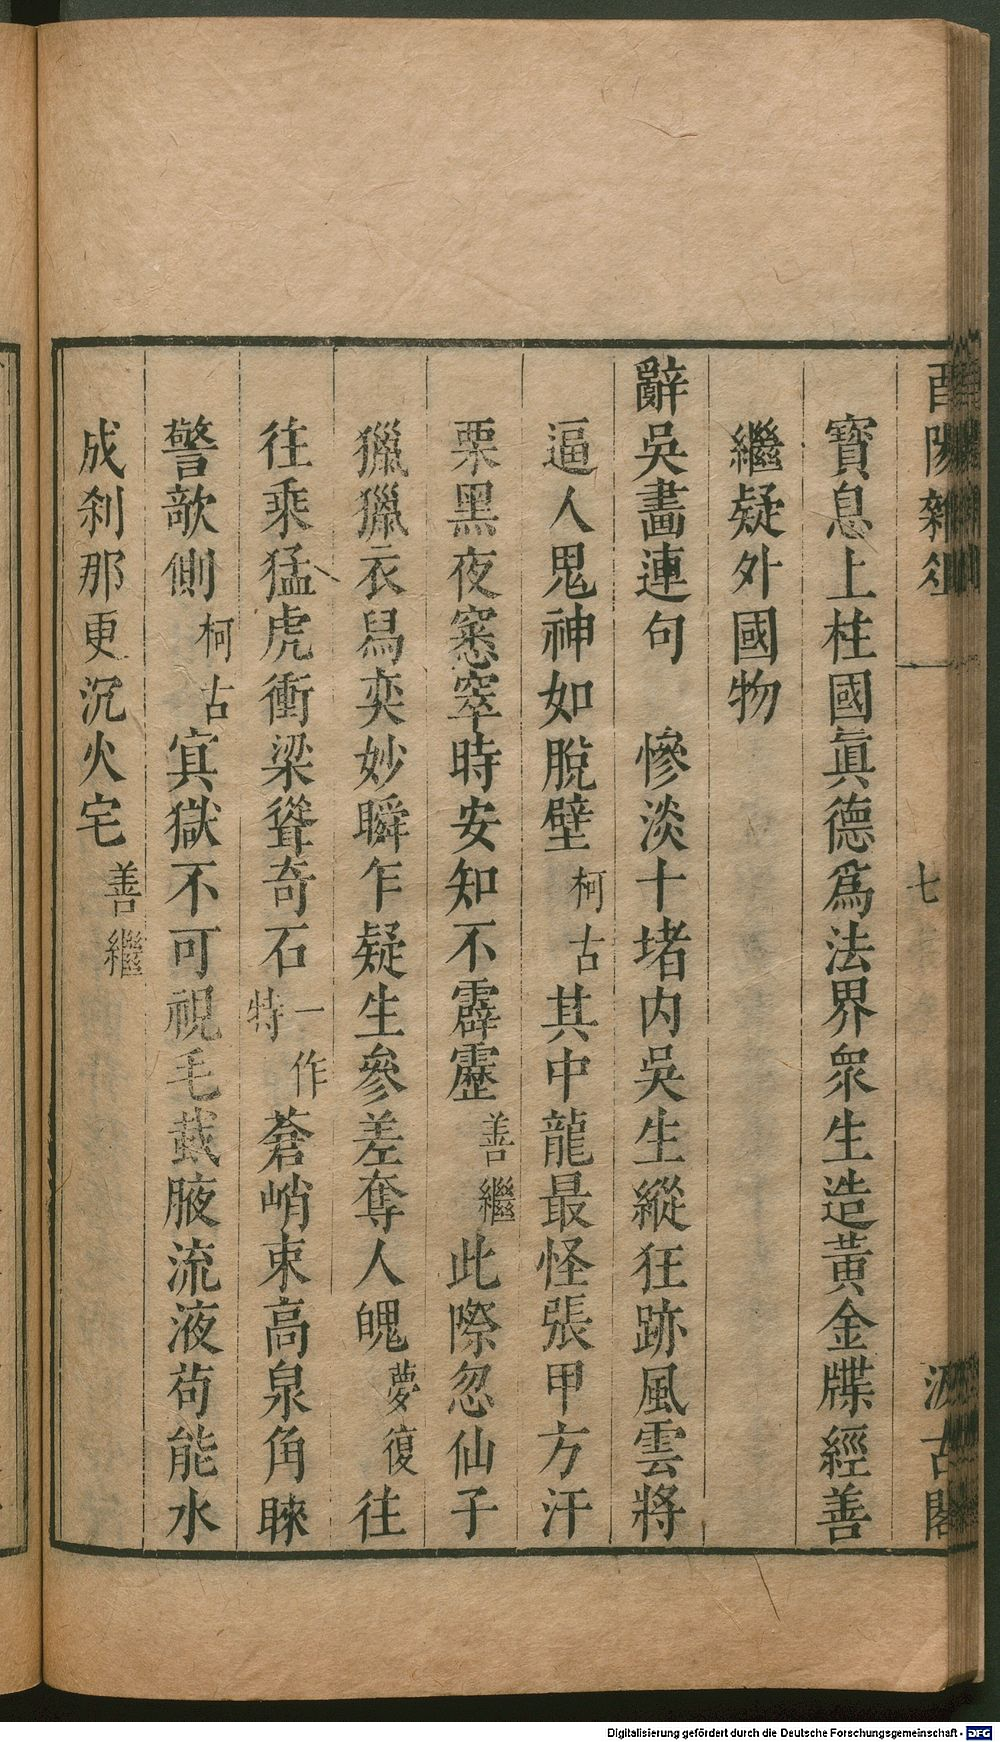 酉陽雜俎
七
汲古閣
寶息上柱國眞德爲法界衆生造黃金牒經善
繼疑外國物
辭吳畫連句　慘淡十堵内吳生縱狂跡風雲將
逼人鬼神如脫壁柯古其中龍最怪張甲方汗
栗黑夜窸窣時安知不霹靂善繼此際忽仙子
獵獵衣舄奕妙瞬乍疑生參差奪人魄夢復往
往乘猛虎衝梁聳奇石一作特蒼峭束高泉角睞
警欹側柯古冥獄不可視毛戴腋流液苟能水
成刹那更沉火宅善繼
Digitalisierung gefördert durch die Deutsche Forschungsgemeinschaft - DFG